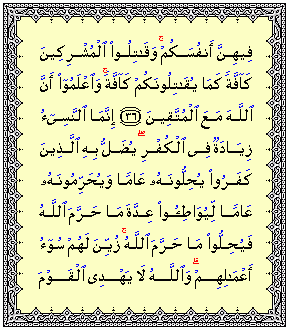 فِيهِنَّ أَنفُسَكُمْ ۚ وَقَٰتِلُوا۟ ٱلْمُشْرِكِينَ
كَآفَّةً كَمَا يُقَٰتِلُونَكُمْ كَآفَّةً ۚ وَٱعْلَمُوٓا۟ أَنَّ
ٱللَّهَ مَعَ ٱلْمُتَّقِينَ ﴿٣٦﴾ إِنَّمَا ٱلنَّسِىٓءُ
زِيَادَةٌ فِى ٱلْكُفْرِ ۖ يُضَلُّ بِهِ ٱلَّذِينَ
كَفَرُوا۟ يُحِلُّونَهُۥ عَامًا وَيُحَرِّمُونَهُۥ
عَامًا لِّيُوَاطِـُٔوا۟ عِدَّةَ مَا حَرَّمَ ٱللَّهُ
فَيُحِلُّوا۟ مَا حَرَّمَ ٱللَّهُ ۚ زُيِّنَ لَهُمْ سُوٓءُ
أَعْمَٰلِهِمْ ۗ وَٱللَّهُ لَا يَهْدِى ٱلْقَوْمَ